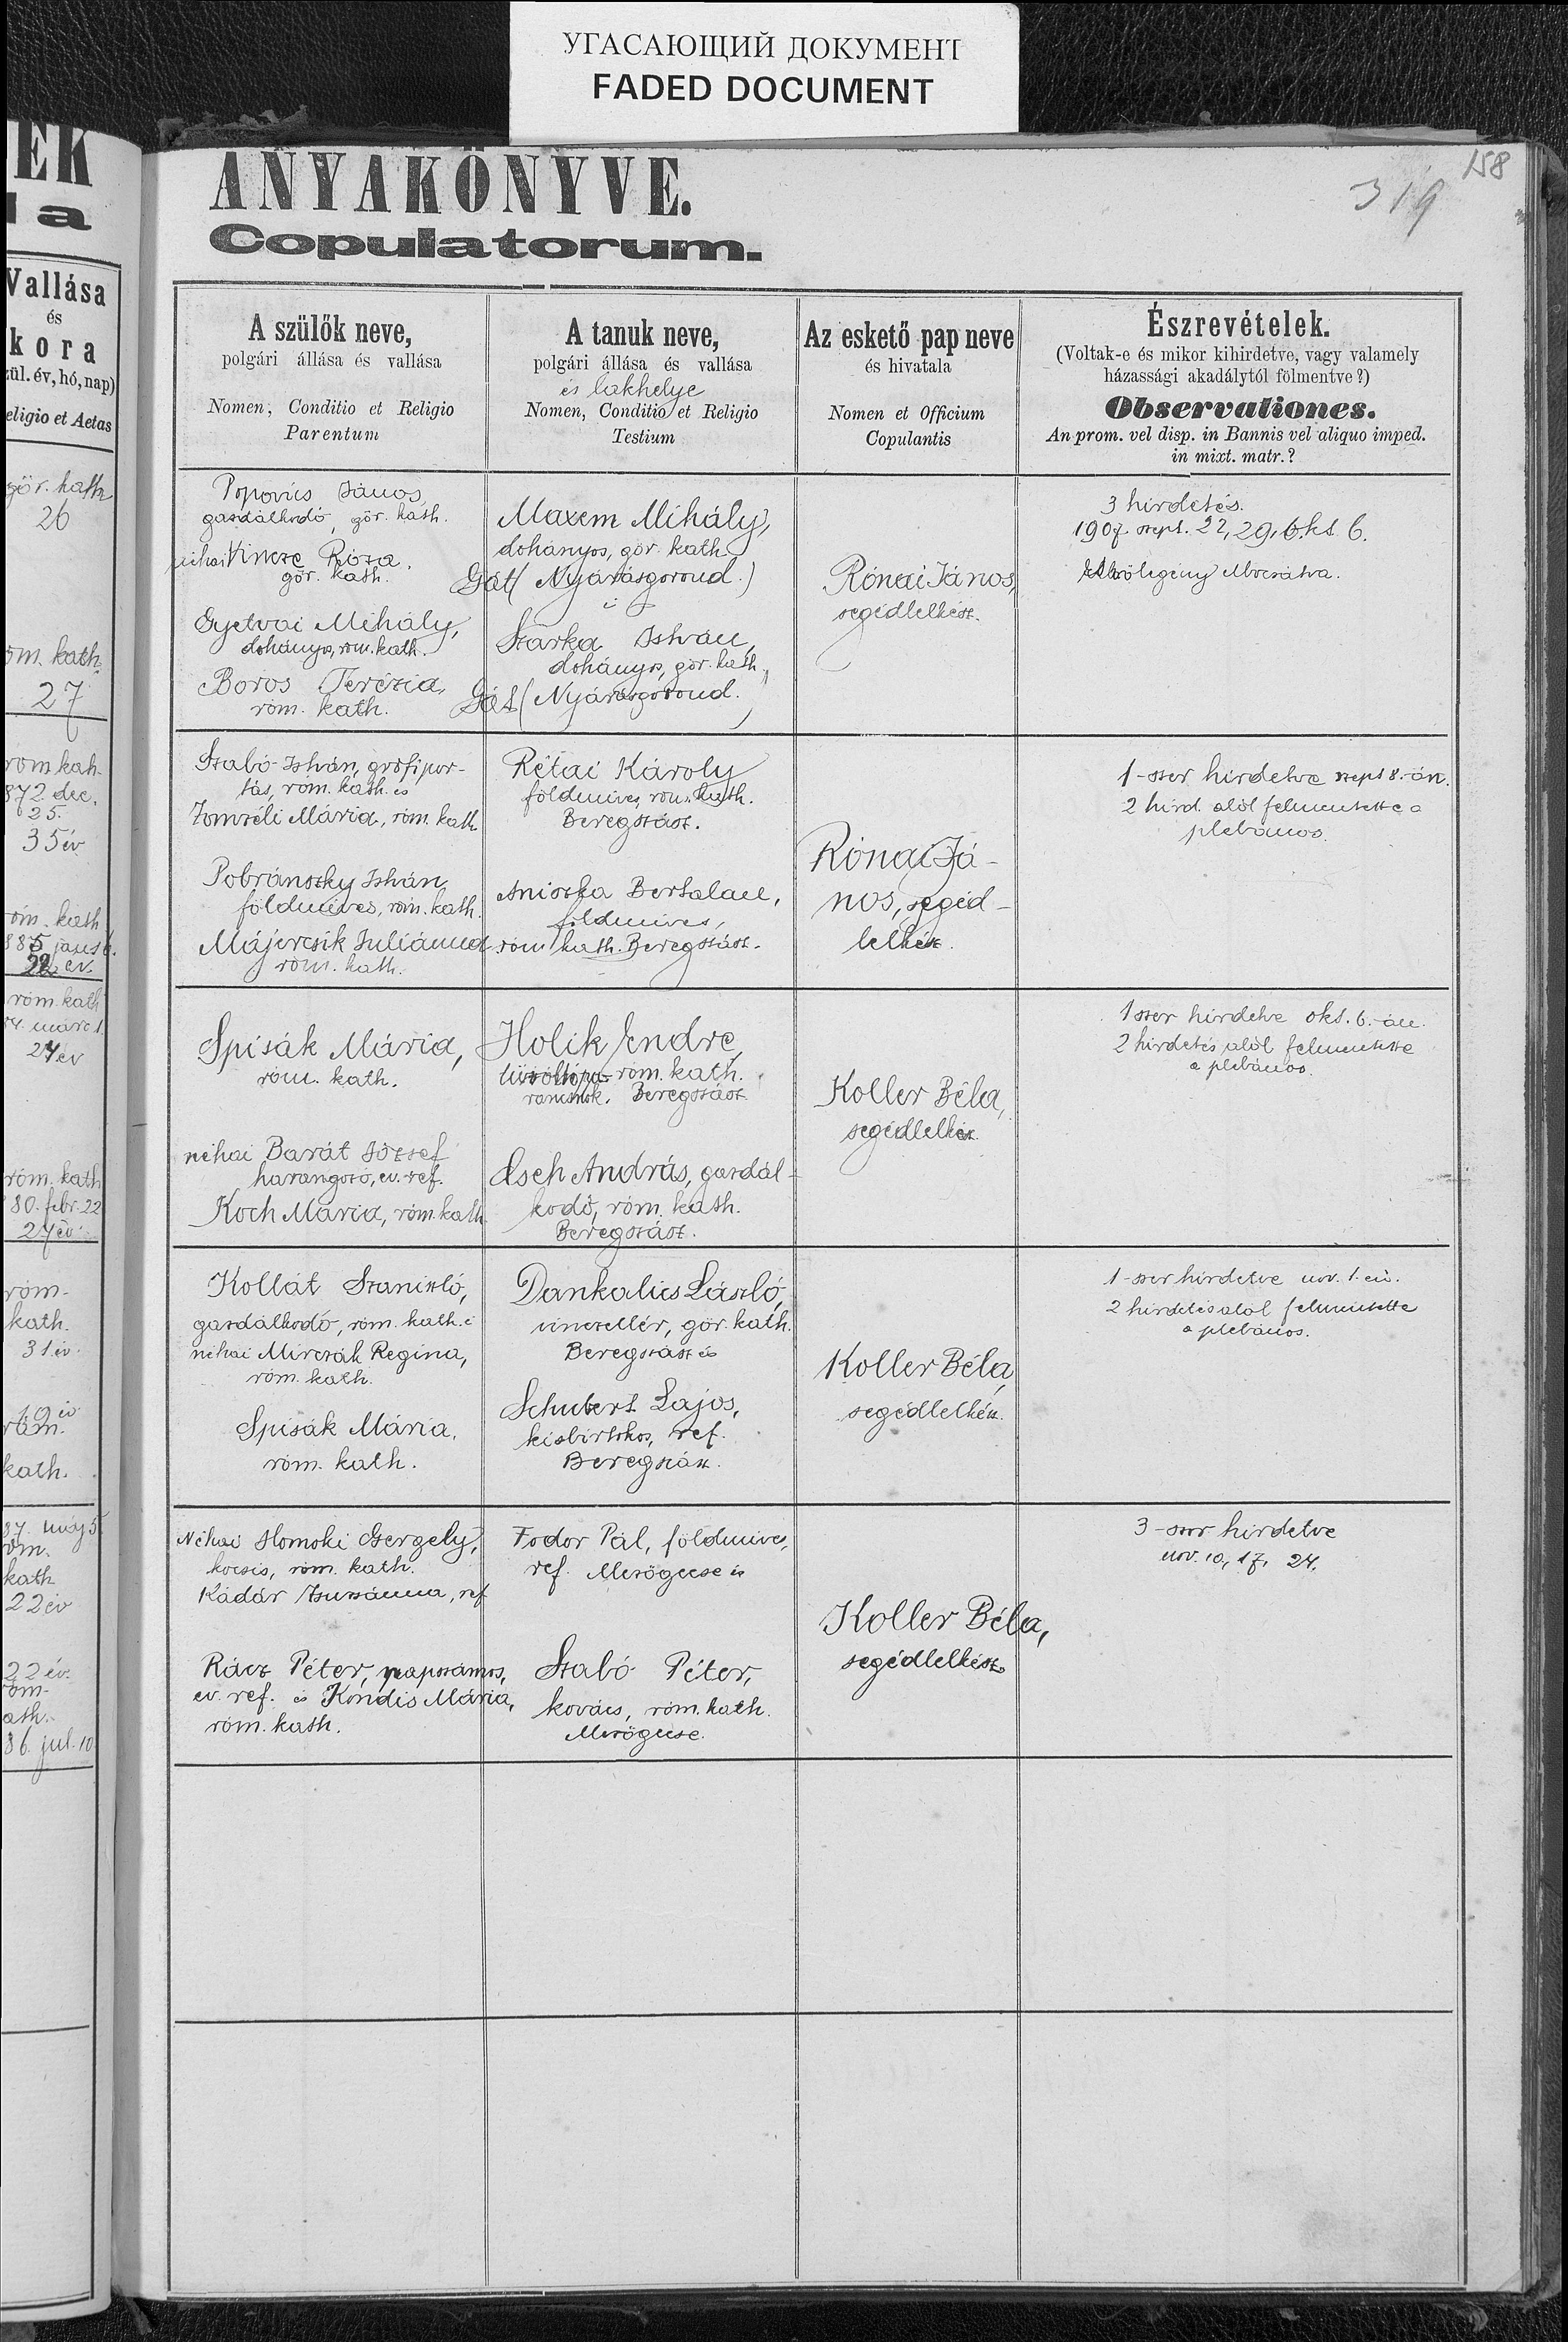 УГАСАЮЩИЙ ДОКУМЕНТ
FADED DOCUMENT
EK
la
Vallása
és
kora
zül. év, hó, nap)
eligio et Aetas
gör. kath
26
om. kath.
27
rom kath.
872 dec.
25.
35 év
róm. kath
róm. kath
24 év
róm. kath
80. febr. 22
27 év
róm.
kath.
31 év.
róm.
kath.
máj 5
róm.
kath
22 év
22 év.
róm.
ath.
86. jul. 10
158
319
ANYAKÖNYVE.
Copulatorum.
A szülők neve,
polgári állása és vallása
Nomen, Conditio et Religio
Parentum
A tanuk neve,
polgári állása és vallása
és lakhelye
Nomen, Conditio et Religio
Testium
Az eskető pap neve
és hivatala
Nomen et Officium
Copulantis
Észrevételek.
(Voltak-e és mikor kihirdetve, vagy valamely
házassági akadálytól fölmentve?)
Observationes.
An prom. vel disp. in Bannis vel aliquo imped.
in mixt. matr.?
Popovics János
gazdálkodó, gör. kath.
néhai Vincze Róza.
gör. kath.
Gyetvai Mihály,
dohányos, róm. kath.
Boros Terézia,
róm. kath.
Maxem Mihály,
dohányos, gör. kath.
Gát (Nyárasgorond.)
Szarka István,
dohányos, gör. kath.
Gát (Nyárasgorond.
Rónai János,
segédlelkész.
3 hirdetés.
1907. szept. 22, 29, okt. 6.
vőlegény
Szabó István, grófi por-
tás, róm. kath. és
Tomzéli Mária, róm. kath
Pobránszky István,
földmíves, róm. kath.
Májercsik Juliánna
róm. kath.
Rétai Károly
földmíves, róm. kath.
Beregszász.
Aniszka Bertalan,
földmíves,
róm. kath. Beregszász.
Rónai Já-
nos, segéd-
lelkész.
1-szer hirdetve szept 8.-án.
2 hird. alól felmentette a
plébános.
Spisák Mária,
róm. kath.
néhai Barát József
harangozó, ev. ref.
Koch Mária, róm. kath
Holik Endre,
róm. kath.
rancsnok. Beregszász
Esch András, gazdál-
kodó, róm. kath.
Beregszász.
Koller Béla,
segédlelkész.
1szer hirdetve okt. 6.-án.
2 hirdetés alól felmentette
a plébános.
Kollát Szaniszló,
gazdálkodó, róm. kath. é
néhai Mirczák Regina,
róm. kath.
Spisák Mária.
róm. kath.
Dankalics László,
vinczellér, gör. kath.
Beregszász és
Schubert Lajos,
kisbirtokos, ref.
Beregszász.
Koller Béla,
segédlelkész.
1-szer hirdetve nov. 1-én.
2 hirdetés alól felmentette
a plébános.
Néhai Homoki Gergely,
kocsis, róm. kath.
Kádár Zsuzsánna, ref
Rácz Péter, napszámos,
ev. ref. és Kondis Mária,
róm. kath.
Fodor Pál, földmíves,
ref. Mezőgecse és
Szabó Péter,
kovács, róm. kath.
Mezőgecse.
Koller Béla,
segédlelkész
3-szor hirdetve
nov. 10, 17, 24.